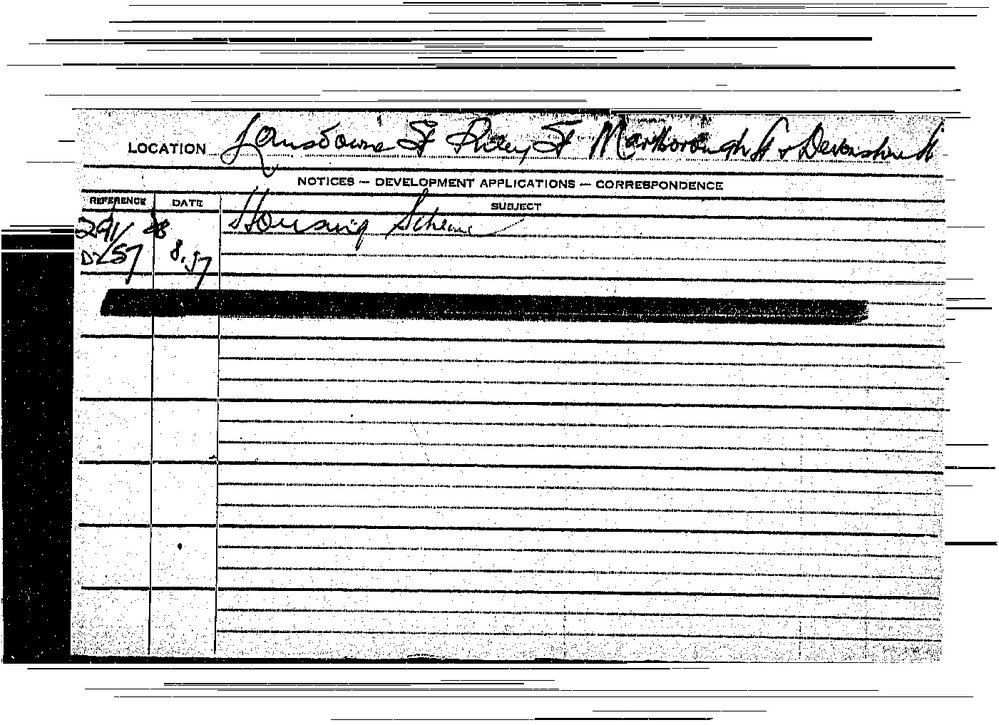 LOCATION Lansdowne St Riley St Marlborough St & Devonshire St
NOTICES — DEVELOPMENT APPLICATIONS — CORRESPONDENCE
REFERENCE DATE SUBJECT
291/ 28 Housing Scheme
D/57 8.57